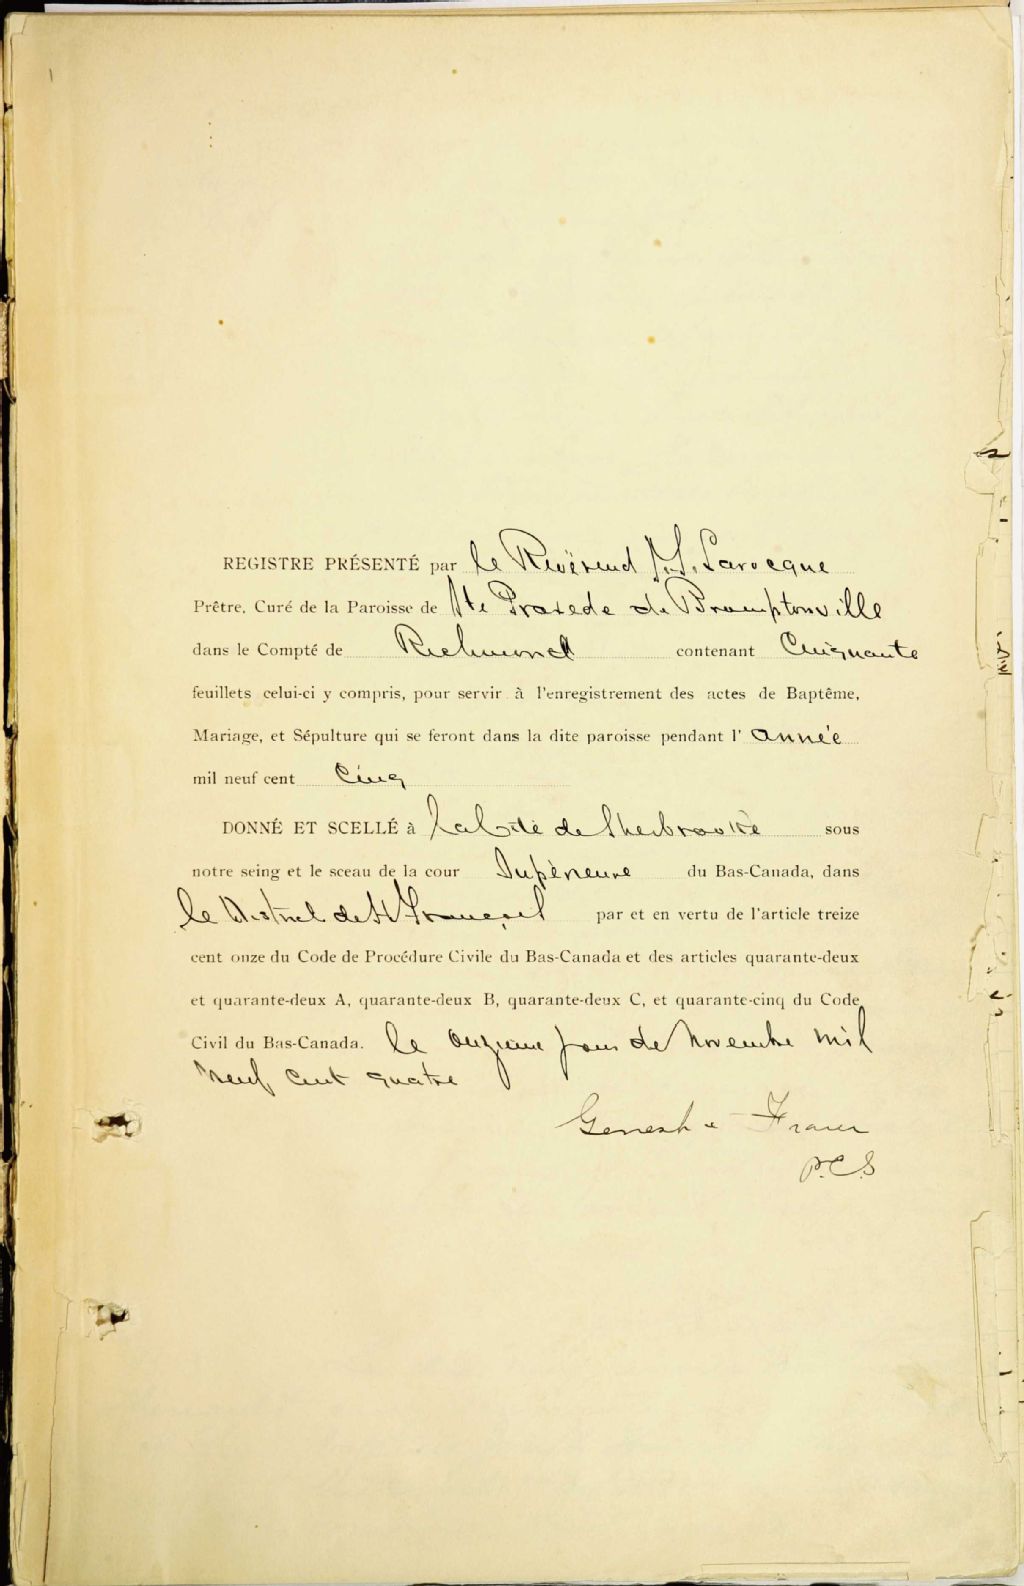 REGISTRE PRÉSENTÉ par le Révérend J. S. Larocque
Prêtre, Curé de la Paroisse de Ste Praxede de Bromptonville
dans le Compté de Richmond contenant Cinquante
feuillets celui-ci y compris, pour servir à l'enregistrement des actes de Baptême,
Mariage, et Sépulture qui se feront dans la dite paroisse pendant l' année
mil neuf cent Cinq
DONNÉ ET SCELLÉ à la Cité de Sherbrooke sous
notre seing et le sceau de la cour Supérieure du Bas-Canada, dans
le District de St François par et en vertu de l'article treize
cent onze du Code de Procédure Civile du Bas-Canada et des articles quarante-deux
et quarante-deux A, quarante-deux B, quarante-deux C, et quarante-cinq du Code
Civil du Bas-Canada. le onzième jour de Novembre mil
neuf cent quatre
P.C.S